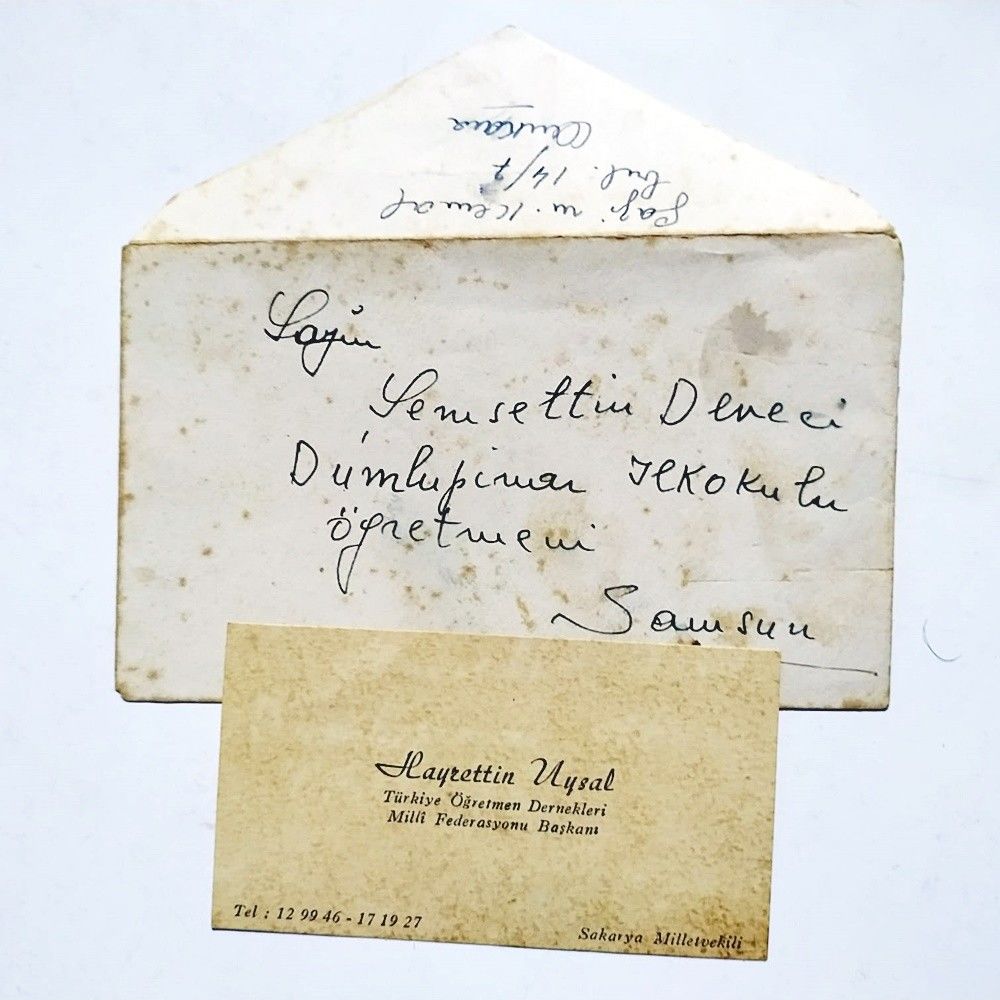 Gazi M. Kemal
bul. 14/7
Ankara
Sayın
Şemsettin Dereci
Dumlupınar İlkokulu
öğretmeni
Samsun
Hayrettin Uysal
Türkiye Öğretmen Dernekleri
Millî Federasyonu Başkanı
Tel : 12 99 46 - 17 19 27
Sakarya Milletvekili